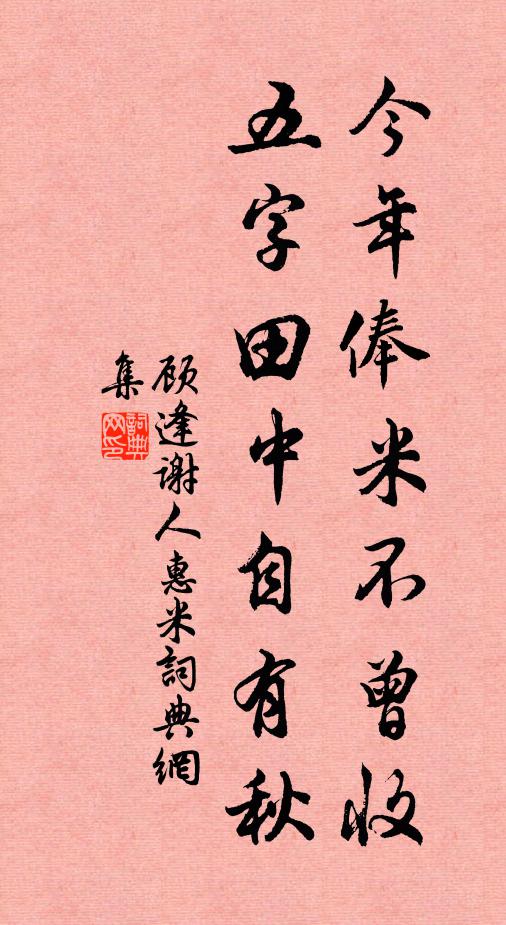 今年俸米不曾收
五字田中自有秋
顾逢谢人惠米詞典網
集
詞典
网印